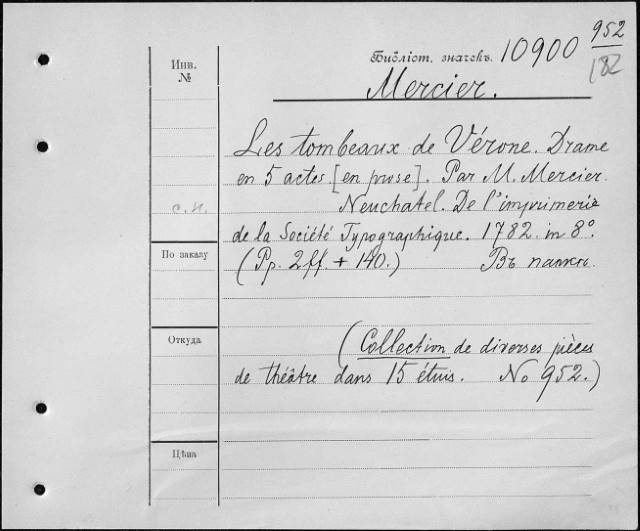 952
Библіот. значекъ. 10900
182
Инв.
№
Mercier.
Les tombeaux de Vérone. Drame
en 5 actes [en prose]. Par M. Mercier.
с.п.
Neuchatel. De l'imprimerie
de la Société Typographique. 1782. in 8°.
По заказу
(Pp. 2ff. + 140.) Въ папкѣ.
Откуда
(Collection de diverses pièces
de théâtre dans 15 étuis. No 952.)
Цѣна